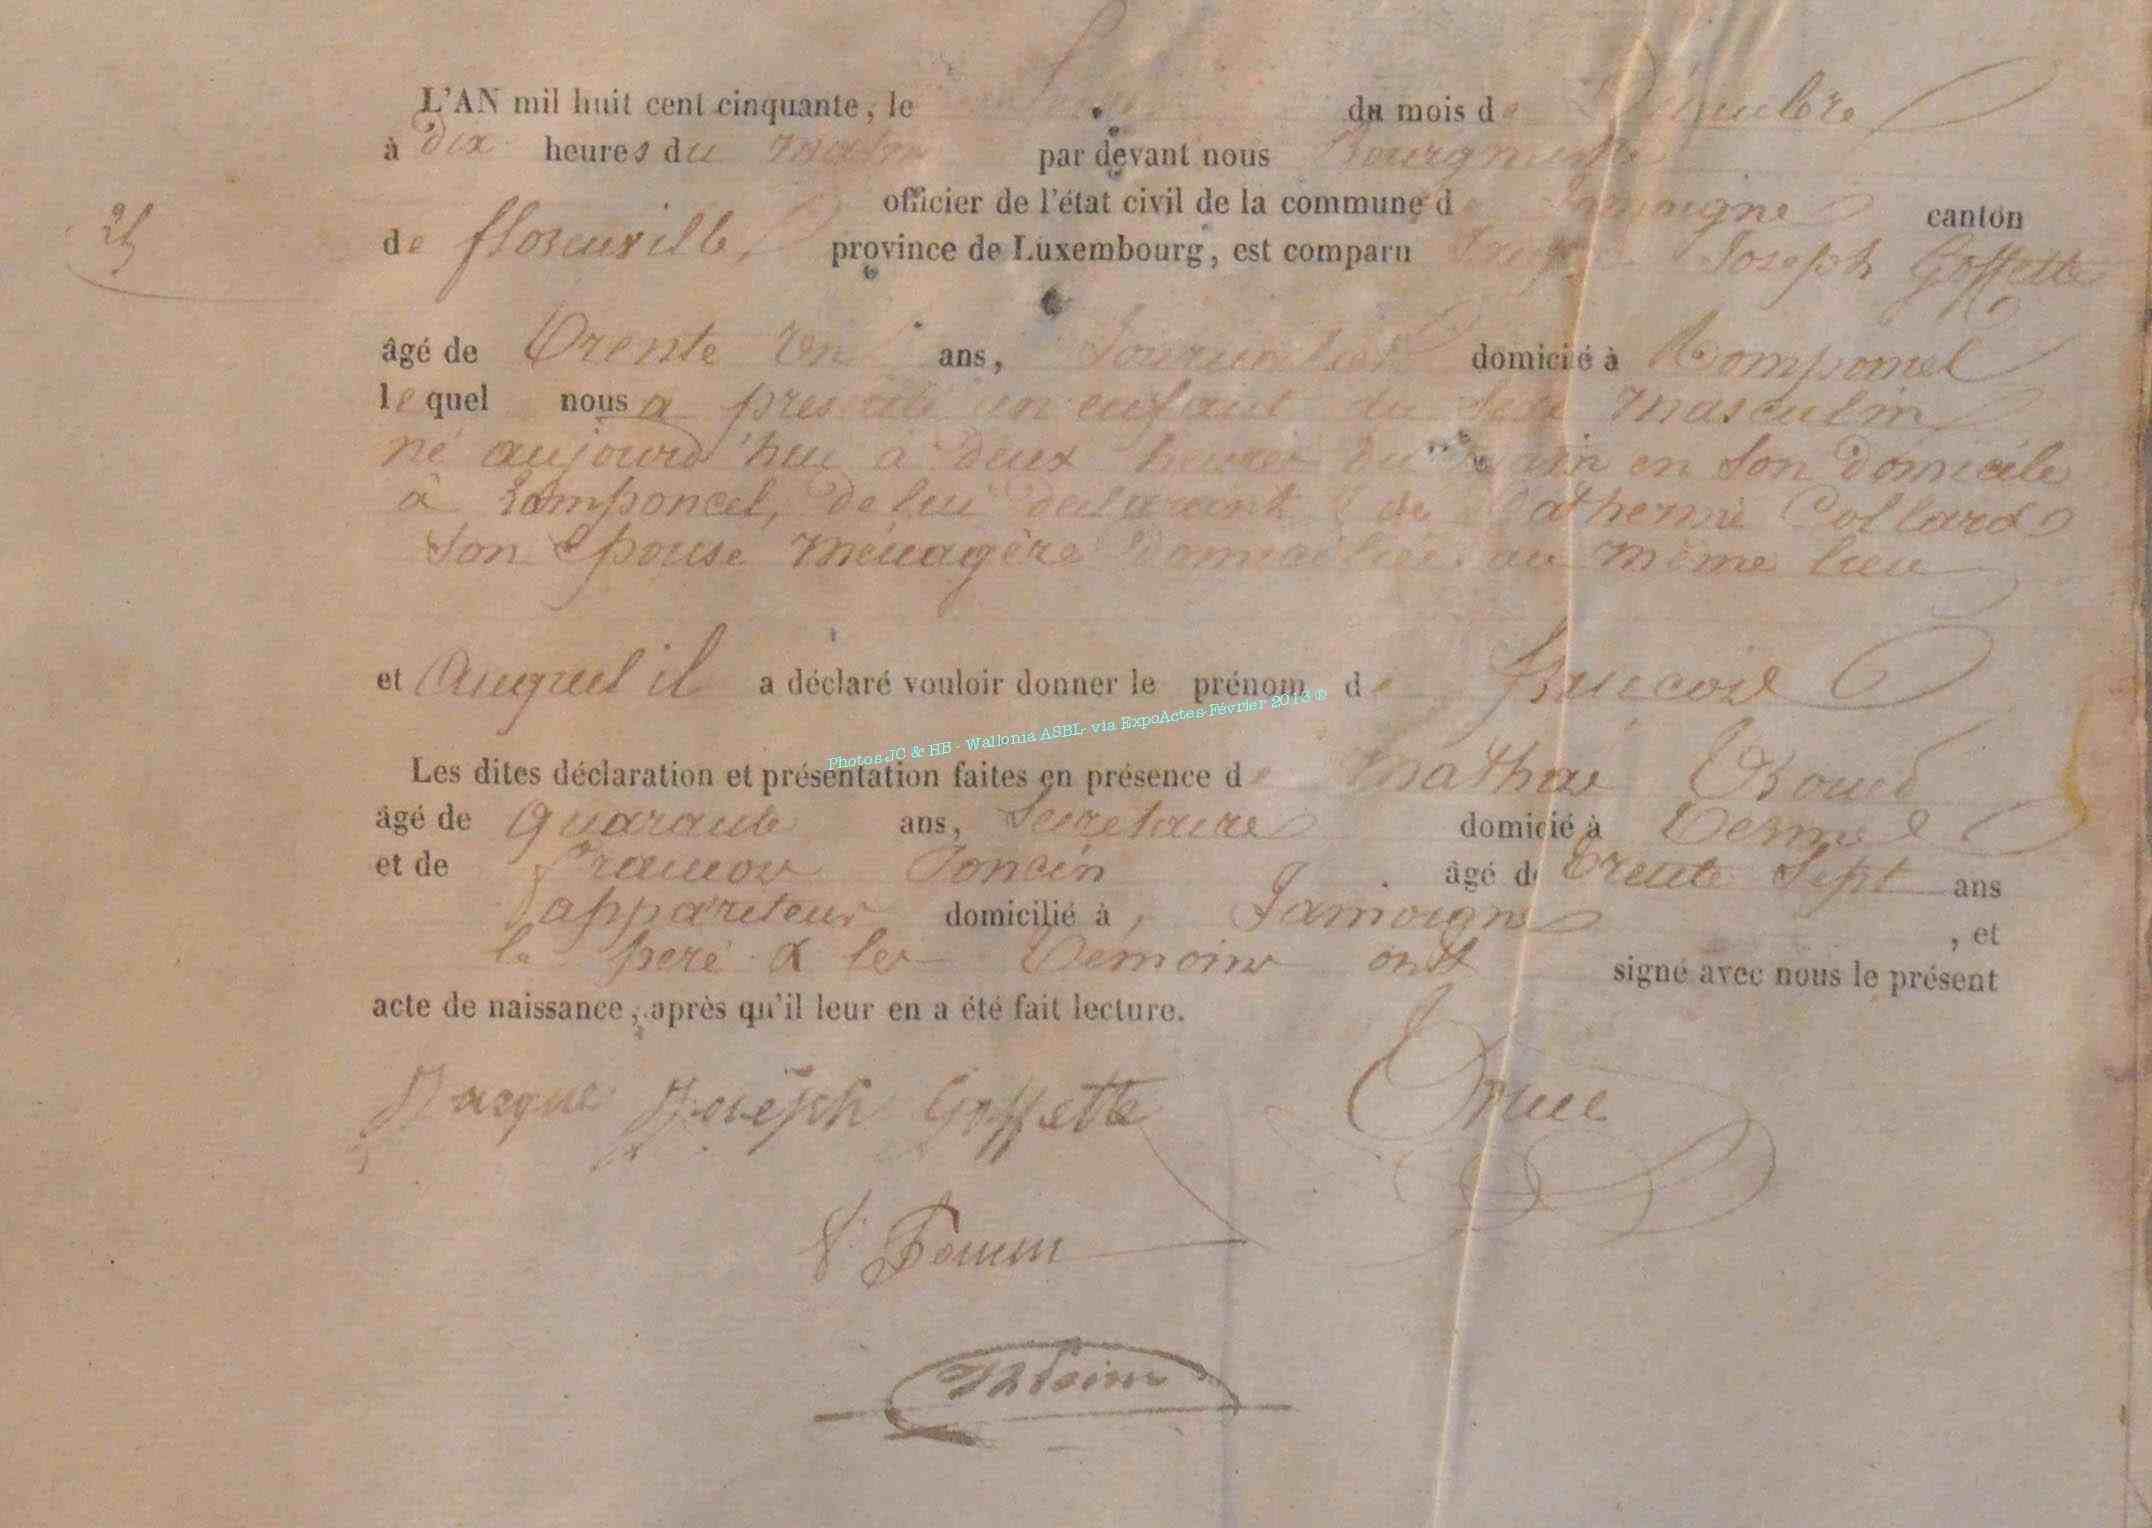 L'AN mil huit cent cinquante, le du mois de Décembre
à dix heures du matin par devant nous Bourgmestre
officier de l'état civil de la commune de Jamoigne canton
25
de florenville, province de Luxembourg, est comparu Joseph Goffette
âgé de Trente Un ans, Journalier domicié à Romponcel
lequel nous a présenté un enfant du Sexe masculin
né aujourd'hui à deux heures du matin en Son domicile
à romponcel, de lui déclarant & de Catherine Collard
Son Epouse ménagère domiciliée au même lieu
et Auquel il a déclaré vouloir donner le prénom de François
Photos JC & HB - Wallonia ASBL via ExpoActes-Février 2013 ®
Les dites déclaration et présentation faites en présence de Mathas
âgé de quarante ans, Secretaire domicié à Termes
et de francois Poncin âgé de Trente Sept ans
appariteur domicilié à Jamoigne , et
le pere & les Temoins ont signé avec nous le présent
acte de naissance, après qu'il leur en a été fait lecture.
Jacque Joseph Goffette